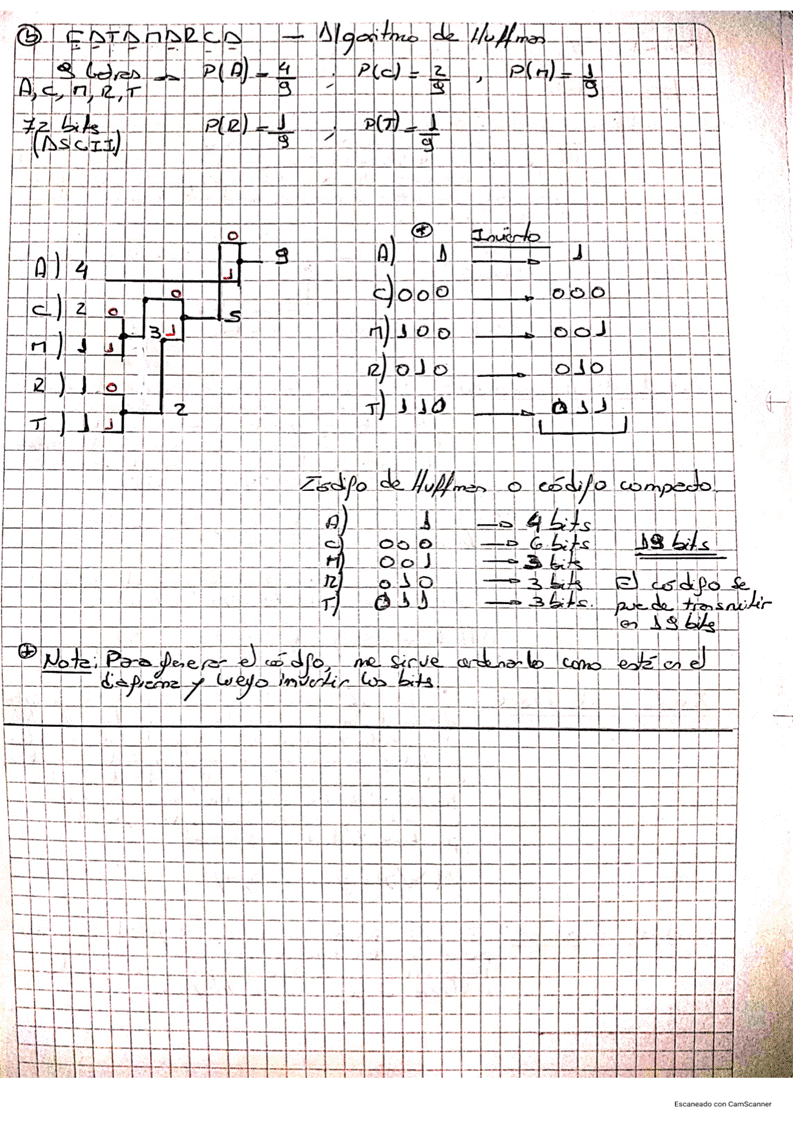 b) CATAMARCA — Algoritmo de Huffman
9 letras → P(A) = 4/9 ; P(C) = 2/9 , P(M) = 1/9
A, C, M, R, T
72 bits P(R) = 1/9 ; P(T) = 1/9
(ASCII)
* Invierto
0 9
A) 4 1 A) 1 → 1
C) 2 0 0 5 C) 000 → 000
M) 1 1 3 1 M) 100 → 001
R) 1 0 R) 010 → 010
T) 1 1 2 T) 110 → 011
Código de Huffman o código compacto
A) 1 → 4 bits
C) 000 → 6 bits 19 bits
M) 001 → 3 bits
R) 010 → 3 bits El código se
T) 011 → 3 bits. puede transmitir
en 19 bits
* Nota: Para generar el código, me sirve ordenarlo como está en el
diagrama y luego invertir los bits.
Escaneado con CamScanner